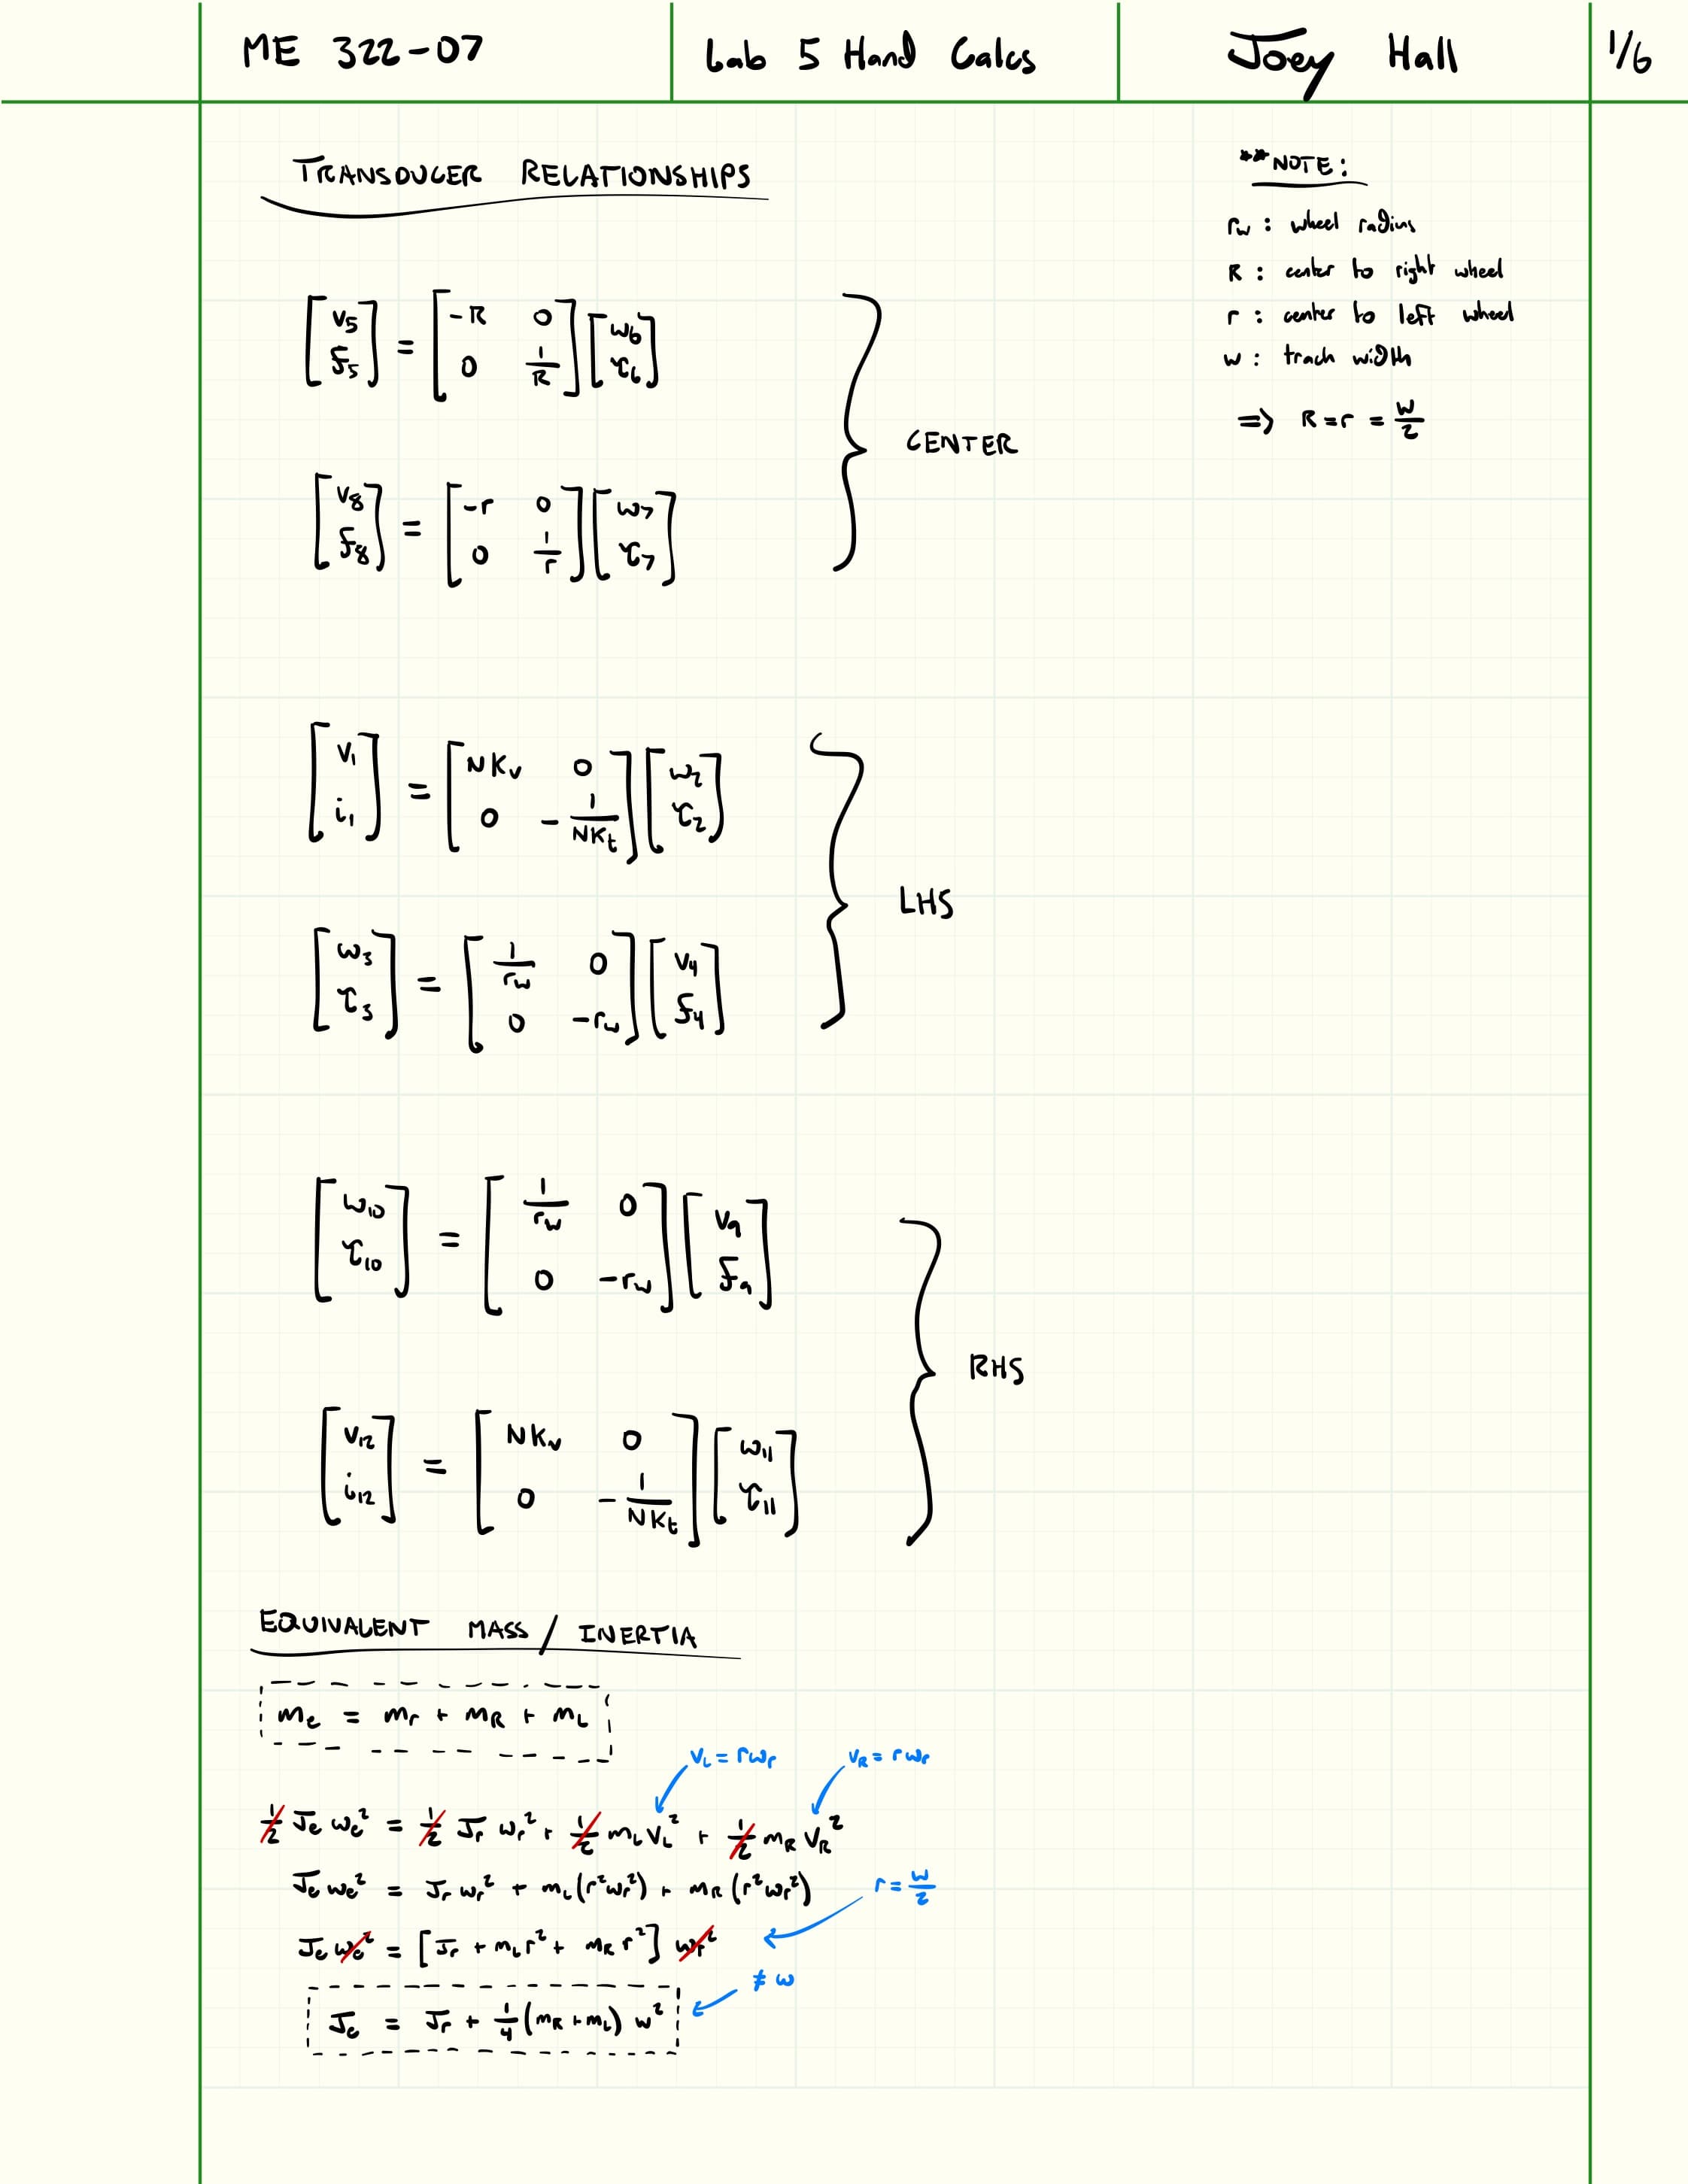 ME 322-07
Lab 5 Hand Calcs
Joey Hall
1/6
TRANSDUCER RELATIONSHIPS
**NOTE:
r_w : wheel radius
R : center to right wheel
r : center to left wheel
w : track width
=> R = r = w/2
[v_5; f_5] = [-R 0; 0 1/R] [ω_6; τ_6]
[v_8; f_8] = [-r 0; 0 1/r] [ω_7; τ_7]
CENTER
[v_1; i_1] = [NK_v 0; 0 -1/NK_t] [ω_2; τ_2]
[ω_3; τ_3] = [1/r_w 0; 0 -r_w] [v_4; f_4]
LHS
[ω_10; τ_10] = [1/r_w 0; 0 -r_w] [v_9; f_9]
[v_12; i_12] = [NK_v 0; 0 -1/NK_t] [ω_11; τ_11]
RHS
EQUIVALENT MASS / INERTIA
m_e = m_r + m_R + m_L
v_L = rω_r
v_R = rω_r
1/2 J_e ω_e² = 1/2 J_r ω_r² + 1/2 m_L v_L² + 1/2 m_R v_R²
J_e ω_e² = J_r ω_r² + m_L (r²ω_r²) + m_R (r²ω_r²)
r = w/2
J_e ω_e² = [J_r + m_L r² + m_R r²] ω_r²
≠ ω
J_e = J_r + 1/4 (m_R + m_L) w²